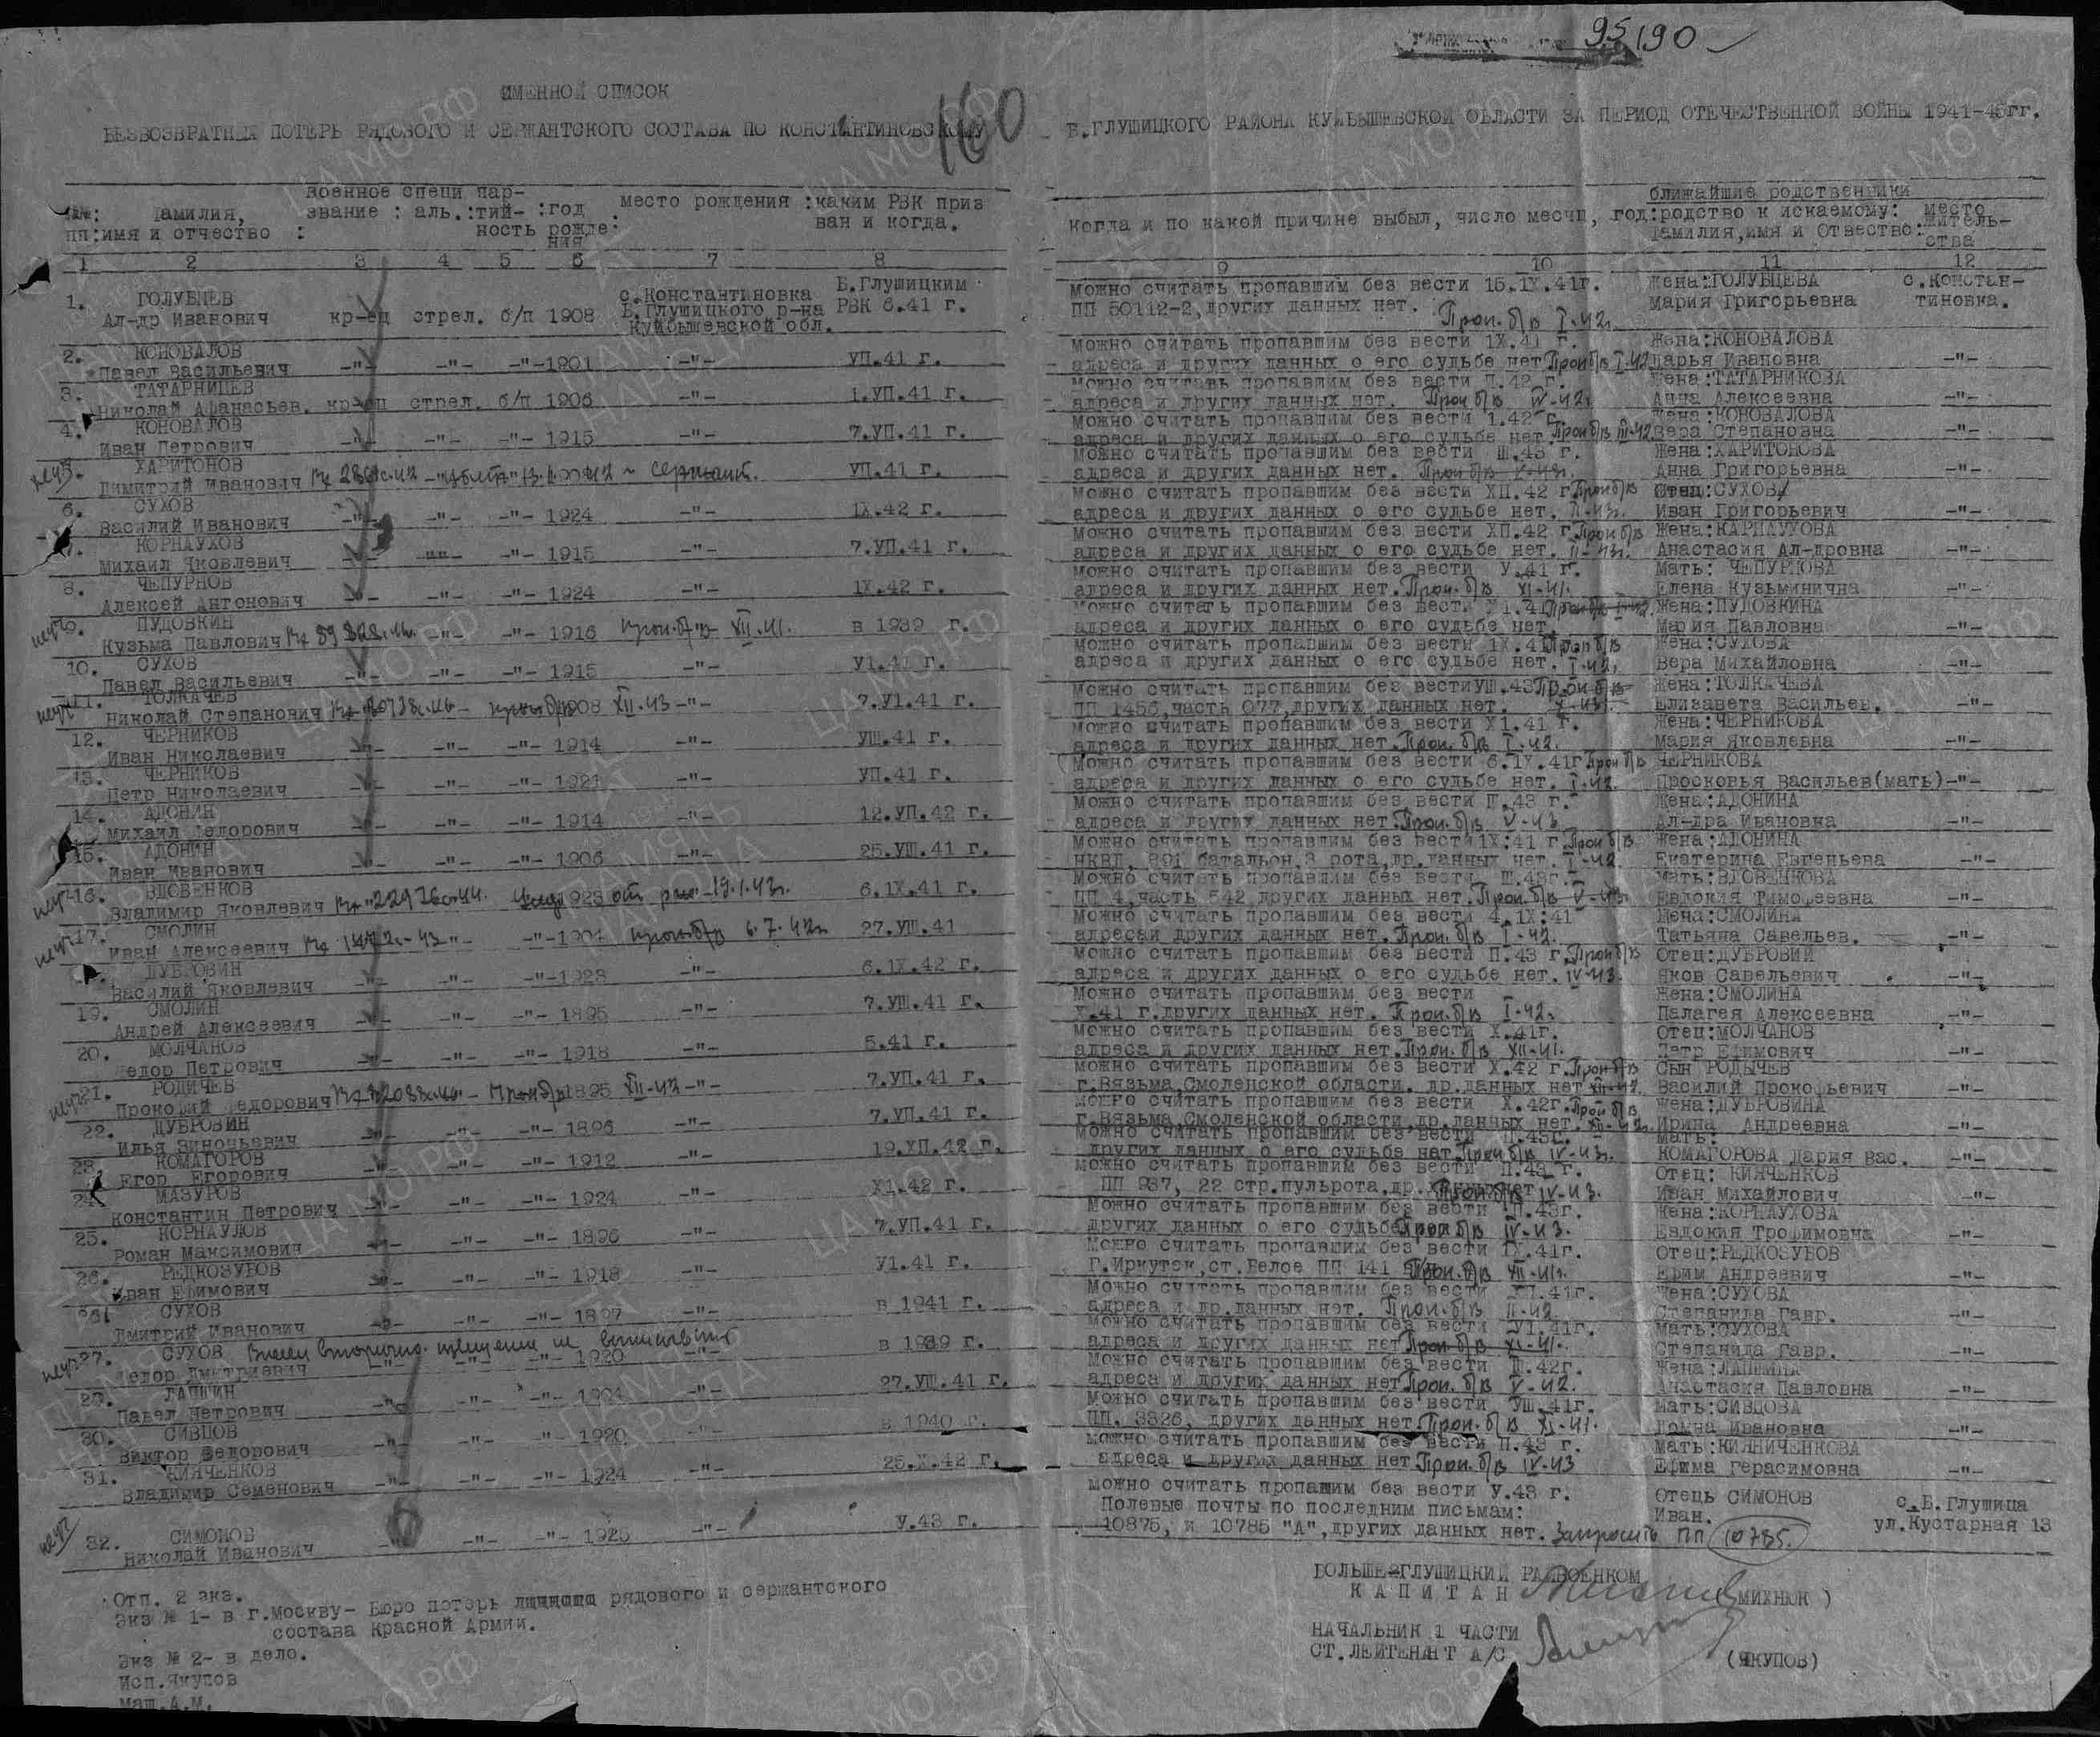 95190
ИМЕННОЙ СПИСОК
160
БЕЗВОЗВРАТНЫХ ПОТЕРЬ РЯДОВОГО И СЕРЖАНТСКОГО СОСТАВА ПО КОНСТАНТИНОВСКОМУ
Б.ГЛУШИЦКОГО РАЙОНА КУЙБЫШЕВСКОЙ ОБЛАСТИ ЗА ПЕРИОД ОТЕЧЕСТВЕННОЙ ВОЙНЫ 1941-45гг.
№№: Фамилия, военное специ пар- место рождения :каким РВК приз
пп:имя и отчество : звание : аль.:тий- :год ван и когда.
ность рожде:
ния
ближайшие родственники
когда и по какой причине выбыл, число месяц, год:родство к искаемому: место
Фамилия,имя и Отвество:житель-
ства
1 2 3 4 5 6 7 8
9 10 11 12
1. ГОЛУБЦЕВ с.Константиновка Б.Глушицким
Ал-др Иванович кр-ец стрел. б/п 1908 Б.Глушицкого р-на РВК 6.41 г.
Куйбышевской обл.
можно считать пропавшим без вести 15.1X.41г. Жена:ГОЛУБЦЕВА с.Констан-
ПП 50112-2,других данных нет. Проп. б/в I-42г. Мария Григорьевна тиновка.
2. КОНОВАЛОВ
Павел Васильевич -"- -"- -"-1901 -"- УП.41 г.
можно считать пропавшим без вести 1X.41 г. Жена:КОНОВАЛОВА
адреса и других данных о его судьбе нет Проп б/в I-42 Дарья Ивановна -"-
3. ТАТАРНИЦЕВ
Николай Афанасьев. кр-ец стрел. б/п 1906 -"- 1.УП.41 г.
можно считать пропавшим без вести П.42 г. Жена:ТАТАРНИКОВА
адреса и других данных нет. Проп б/в IV-42г. Анна Алексеевна -"-
4. КОНОВАЛОВ
Иван Петрович -"- -"- -"- 1915 -"- 7.УП.41 г.
можно считать пропавшим без вести 1.42 г. Жена:КОНОВАЛОВА
адреса и других данных о его судьбе нет Проп б/в III-42 Вера Степановна -"-
5. ХАРИТОНОВ
Димитрий Иванович сержант. УП.41 г.
можно считать пропавшим без вести Ш.43 г. Жена:ХАРИТОНОВА
адреса и других данных нет. Проп б/в V-43г. Анна Григорьевна -"-
6. СУХОВ
Василий Иванович -"- -"- -"- 1924 -"- 1X.42 г.
можно считать пропавшим без вести ХП.42 г. Проп б/в Отец:СУХОВ
адреса и других данных о его судьбе нет. II-43г. Иван Григорьевич -"-
КОРНАУХОВ
Михаил Яковлевич -"- -"- -"- 1915 -"- 7.УП.41 г.
можно считать пропавшим без вести ХП.42 г. Проп б/в Жена:КАРНАУХОВА
адреса и других данных о его судьбе нет. II-43г. Анастасия Ал-дровна -"-
8. ЧЕПУРНОВ
Алексей Антонович -"- -"- -"- 1924 -"- 1X.42 г.
можно считать пропавшим без вести У.41 г. Мать: ЧЕПУРНОВА
адреса и других данных нет. Проп. б/в XI-41. Елена Кузьминична -"-
9. ПУДОВКИН
Кузьма Павлович -"- -"- 1916 проп. б/в XII.41. в 1939 г.
можно считать пропавшим без вести Жена:ПУДОВКИНА
адреса и других данных о его судьбе нет. Мария Павловна -"-
10. СУХОВ
Павел Васильевич -"- -"- -"- 1915 -"- У1.41 г.
можно считать пропавшим без вести 1X.41 Проп б/в Жена:СУХОВА
адреса и других данных о его судьбе нет. I-42г. Вера Михайловна -"-
11. ТОЛКАЧЕВ
Николай Степанович 1908 XII-43 -"- 7.У1.41 г.
можно считать пропавшим без вести УШ.43 Проп б/в Жена:ТОЛКАЧЕВА
ПП 1456,часть 077,других данных нет. Елизавета Васильев. -"-
12. ЧЕРНИКОВ
Иван Николаевич -"- -"- -"- 1914 -"- УШ.41 г.
можно считать пропавшим без вести Х1.41 г. Жена:ЧЕРНИКОВА
адреса и других данных нет. Проп. б/в I-42. Мария Яковлевна -"-
13. ЧЕРНИКОВ
Петр Николаевич -"- -"- -"- 1921 -"- УП.41 г.
Можно считать пропавшим без вести 6.1X.41г Проп б/в ЧЕРНИКОВА
адреса и других данных о его судьбе нет. I-42. Просковья Васильев(мать)-"-
14. АДОНИН
Михаил Федорович -"- -"- -"- 1914 -"- 12.УП.42 г.
можно считать пропавшим без вести Ш.43 г. Жена:АДОНИНА
адреса и других данных нет. Проп. б/в V-43 Ал-дра Ивановна -"-
15. АДОНИН
Иван Иванович -"- -"- -"- 1906 -"- 25.УШ.41 г.
можно считать пропавшим без вести 1X.41 г Проп б/в Жена:АДОНИНА
НКВД, 891 батальон,3 рота,др.данных нет. I-42 Екатерина Евгеньева -"-
16. ВДОВЕНКОВ
Владимир Яковлевич 1923 от ран -19.1.43г. 6.1X.41 г.
можно считать пропавшим без вести Ш.43г. Мать:ВДОВЕНКОВА
ПП 4,часть 542 других данных нет. Проп. б/в V-43г. Евдокия Тимофеевна -"-
17. СМОЛИН
Иван Алексеевич -"- -"-1904 проп. б/в 6.7.42г. 27.УШ.41
можно считать пропавшим без вести 4.1X.41 Жена:СМОЛИНА
адресаи других данных нет. Проп. б/в I-42. Татьяна Савельев. -"-
ДУБРОВИН
Василий Яковлевич -"- -"- -"-1923 -"- 6.1X.42 г.
можно считать пропавшим без вести П.43 г. Проп б/в Отец:ДУБРОВИЙ
адреса и других данных о его судьбе нет. IV-43. Яков Савельевич -"-
19. СМОЛИН
Андрей Алексеевич -"- -"- -"- 1895 -"- 7.УШ.41 г.
можно считать пропавшим без вести Жена:СМОЛИНА
Х.41 г.других данных нет. Проп. б/в I-42г. Палагея Алексеевна -"-
20. МОЛЧАНОВ
Федор Петрович -"- -"- -"- 1918 -"- 5.41 г.
можно считать пропавшим без вести Х.41г. Отец:МОЛЧАНОВ
адреса и других данных нет. Проп. б/в XII-41. Петр Ефимович -"-
21. РОДИЧЕВ
Прокофий Федорович Проп б/в 1895 XII-42 -"- 7.УП.41 г.
можно считать пропавшим без вести Х.42 г. Проп б/в Сын РОДЫЧЕВ
г.Вязьма,Смоленской области. др.данных нет XII-42 Василий Прокофьевич -"-
22. ДУБРОВИН
Илья Зиновьевич -"- -"- -"- 1896 -"- 7.УП.41 г.
можно считать пропавшим без вести Х.42г. Проп б/в Жена:ДУБРОВИНА
г.Вязьма,Смоленской области,др.данных нет. XII-42г. Ирина Андреевна -"-
23. КОМАГОРОВ
Егор Егорович -"- -"- -"- 1912 -"- 19.ХП.42 г.
можно считать пропавшим без вести П.43г. Мать:
других данных о его судьбе нет Проп б/в IV-43г. КОМАГОРОВА Дария Вас. -"-
24. МАЗУРОВ
Константин Петрович -"- -"- -"- 1924 -"- Х1.42 г.
можно считать пропавшим без вести П.43 г. Отец: КИЯЧЕНКОВ
ПП 937, 22 стр.пульрота,др. Проп б/в IV-43. Иван Михайлович -"-
25. КОРНАУЛОВ
Роман Максимович -"- -"- -"- 1896 -"- 7.УП.41 г.
Можно считать пропавшим без вести П.43г. Жена:КОРНАУХОВА
других данных о его судьбе Проп б/в IV-43. Евдокия Трофимовна -"-
26. РЕДКОЗУБОВ
Иван Ефимович -"- -"- -"- 1918 -"- У1.41 г.
Можно считать пропавшим без вести 1X.41г. Отец:РЕДКОЗУБОВ
г.Иркутск,ст.Белое ПП 141 Проп. б/в XII-41г. Ефим Андреевич -"-
СУХОВ
Дмитрий Иванович -"- -"- -"- 1897 -"- в 1941 г.
Можно считать пропавшим без вести ХП.41г. Жена:СУХОВА
адреса и др.данных нет. Проп. б/в II-42. Степанида Гавр. -"-
27. СУХОВ
Федор Дмитриевич -"- -"- -"- 1920 -"- в 1939 г.
можно считать пропавшим без вести У1.41г. Мать:СУХОВА
адреса и других данных нет Проп б/в XI-41. Степанида Гавр. -"-
29. ЛАПШИН
Павел Петрович -"- -"- -"- 1921 -"- 27.УШ.41 г.
Можно считать пропавшим без вести Ш.42г. Жена:ЛАПШИНА
адреса и других данных нет Проп. б/в V-42. Анастасия Павловна -"-
30. СИВЦОВ
Виктор Федорович -"- -"- -"- 1920 -"- в 1940 г.
Можно считать пропавшим без вести УШ.41г. Мать:СИВЦОВА
ПП. 3326, других данных нет. Проп. б/в XI-41. Домна Ивановна -"-
31. КИЯЧЕНКОВ
Владимир Семенович -"- -"- -"- 1924 -"- 25.Х.42 г.
можно считать пропавшим без вести П.43 г. Мать:КИЯНИЧЕНКОВА
адреса и других данных нет Проп. б/в IV-43 Ефима Герасимовна -"-
32. СИМОНОВ
Николай Иванович -"- -"- -"- 1925 -"- У.43 г.
можно считать пропашим без вести У.43 г. Отець СИМОНОВ с.Б.Глушица
Полевые почты по последним письмам: Иван. ул.Кустарная 13
10875, и 10785 "А",других данных нет. Запросить ПП 10785.
Отп. 2 экз.
Экз № 1- в г.Москву- Бюро потерь рядового и сержантского
состава Красной Армии.
Экз № 2- в дело.
Исп.Якупов
Маш.А.М.
БОЛЬШЕ-ГЛУШИЦКИЙ РАЙВОЕНКОМ
КАПИТАН (МИХНЮК)
НАЧАЛЬНИК 1 ЧАСТИ
СТ.ЛЕЙТЕНАНТ А/С (ЯКУПОВ)